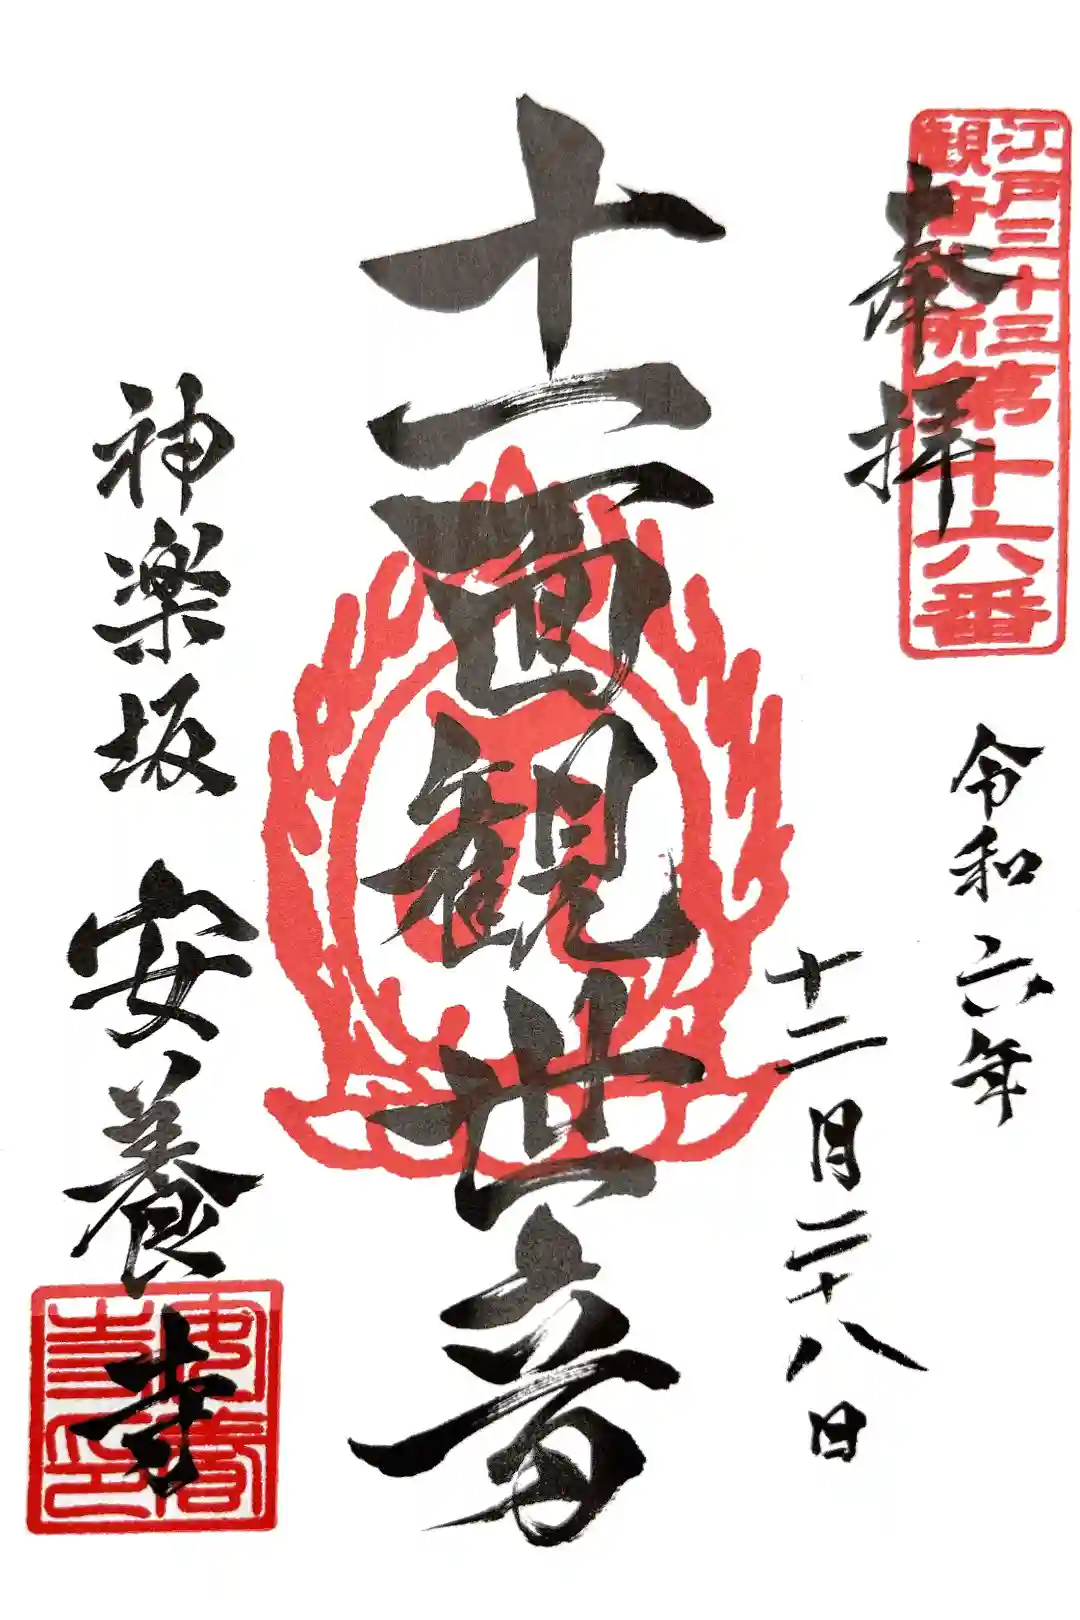 江戸三十三
観音札所
第十六番
奉拝
令和六年
十二月二十八日
十一面観世音
神楽坂 安養寺
安養寺印